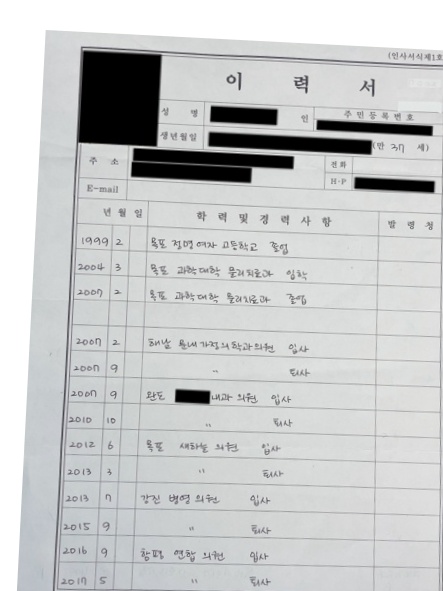 (인사서식제1호
이 력 서
성 명 인 주 민 등 록 번 호
생년월일 (만 37 세)
주 소 전 화
H·P
E-mail
년 월 일 학 력 및 경 력 사 항 발 령 청
1999 2 목포 정명 여자 고등학교 졸업
2004 3 목포 과학대학 물리치료과 입학
2007 2 목포 과학대학 물리치료과 졸업
2007 2 해남 문내가정의학과의원 입사
2007 9 〃 퇴사
2007 9 완도 내과 의원 입사
2010 10 〃 퇴사
2012 6 목포 새하늘 의원 입사
2013 3 〃 퇴사
2013 7 강진 병영 의원 입사
2015 9 〃 퇴사
2016 9 함평 연합 의원 입사
2017 5 〃 퇴사